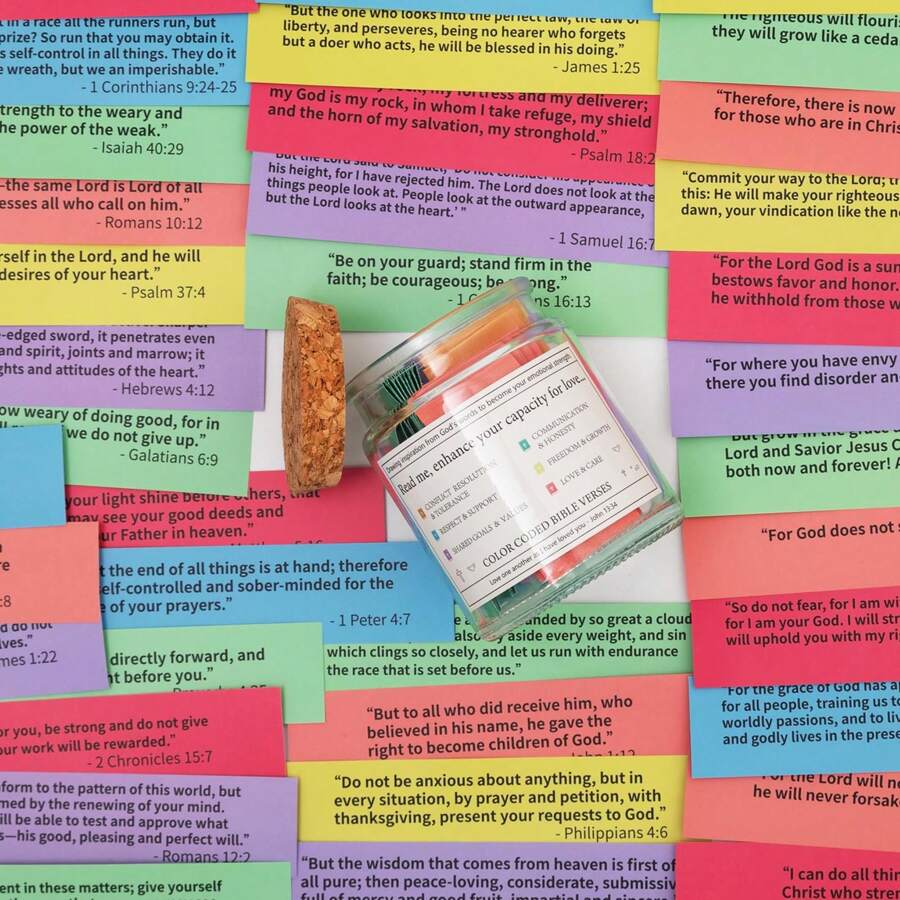 t in a race all the runners run, but
prize? So run that you may obtain it.
s self-control in all things. They do it
e wreath, but we an imperishable.”
- 1 Corinthians 9:24-25
trength to the weary and
he power of the weak.”
- Isaiah 40:29
—the same Lord is Lord of all
esses all who call on him.”
- Romans 10:12
rself in the Lord, and he will
desires of your heart.”
- Psalm 37:4
-edged sword, it penetrates even
and spirit, joints and marrow; it
ghts and attitudes of the heart.”
- Hebrews 4:12
ow weary of doing good, for in
we do not give up.”
- Galatians 6:9
your light shine before others, that
may see your good deeds and
ur Father in heaven.”
t the end of all things is at hand; therefore
elf-controlled and sober-minded for the
e of your prayers.”
- 1 Peter 4:7
re
:8
d do not
lves.”
mes 1:22
directly forward, and
t before you.”
or you, be strong and do not give
our work will be rewarded.”
- 2 Chronicles 15:7
form to the pattern of this world, but
med by the renewing of your mind.
ill be able to test and approve what
s—his good, pleasing and perfect will.”
- Romans 12:2
ent in these matters; give yourself
“But the one who looks into the perfect law, the law of
liberty, and perseveres, being no hearer who forgets
but a doer who acts, he will be blessed in his doing.”
- James 1:25
my rock, my fortress and my deliverer;
my God is my rock, in whom I take refuge, my shield
and the horn of my salvation, my stronghold.”
- Psalm 18:2
“But the Lord said to Samuel, “Do not consider his appearance o
his height, for I have rejected him. The Lord does not look at the
things people look at. People look at the outward appearance,
but the Lord looks at the heart.’ ”
- 1 Samuel 16:7
“Be on your guard; stand firm in the
faith; be courageous; be ong.”
- 1 C ns 16:13
Drawing inspiration from God's words to become your emotional strength
Read me, enhance your capacity for love...
CONFLICT RESOLUTION
& TOLERANCE
RESPECT & SUPPORT
SHARED GOALS & VALUES
COMMUNICATION
& HONESTY
FREEDOM & GROWTH
LOVE & CARE
COLOR CODED BIBLE VERSES
Love one another as I have loved you - John 13:34
unded by so great a cloud
also aside every weight, and sin
which clings so closely, and let us run with endurance
the race that is set before us.”
“But to all who did receive him, who
believed in his name, he gave the
right to become children of God.”
John 1:12
“Do not be anxious about anything, but in
every situation, by prayer and petition, with
thanksgiving, present your requests to God.”
- Philippians 4:6
“But the wisdom that comes from heaven is first of
all pure; then peace-loving, considerate, submissiv
full of mercy and good fruit, impartial and sincere
The righteous will flouris
they will grow like a ceda
“Therefore, there is now
for those who are in Chris
“Commit your way to the Lord; tr
this: He will make your righteous
dawn, your vindication like the no
“For the Lord God is a sun
bestows favor and honor.
he withhold from those w
“For where you have envy
there you find disorder an
But grow in the grace a
Lord and Savior Jesus C
both now and forever! A
“For God does not s
“So do not fear, for I am wi
for I am your God. I will str
will uphold you with my rig
“For the grace of God has ap
for all people, training us to
worldly passions, and to liv
and godly lives in the prese
or the Lord will ne
he will never forsak
“I can do all thin
Christ who stren